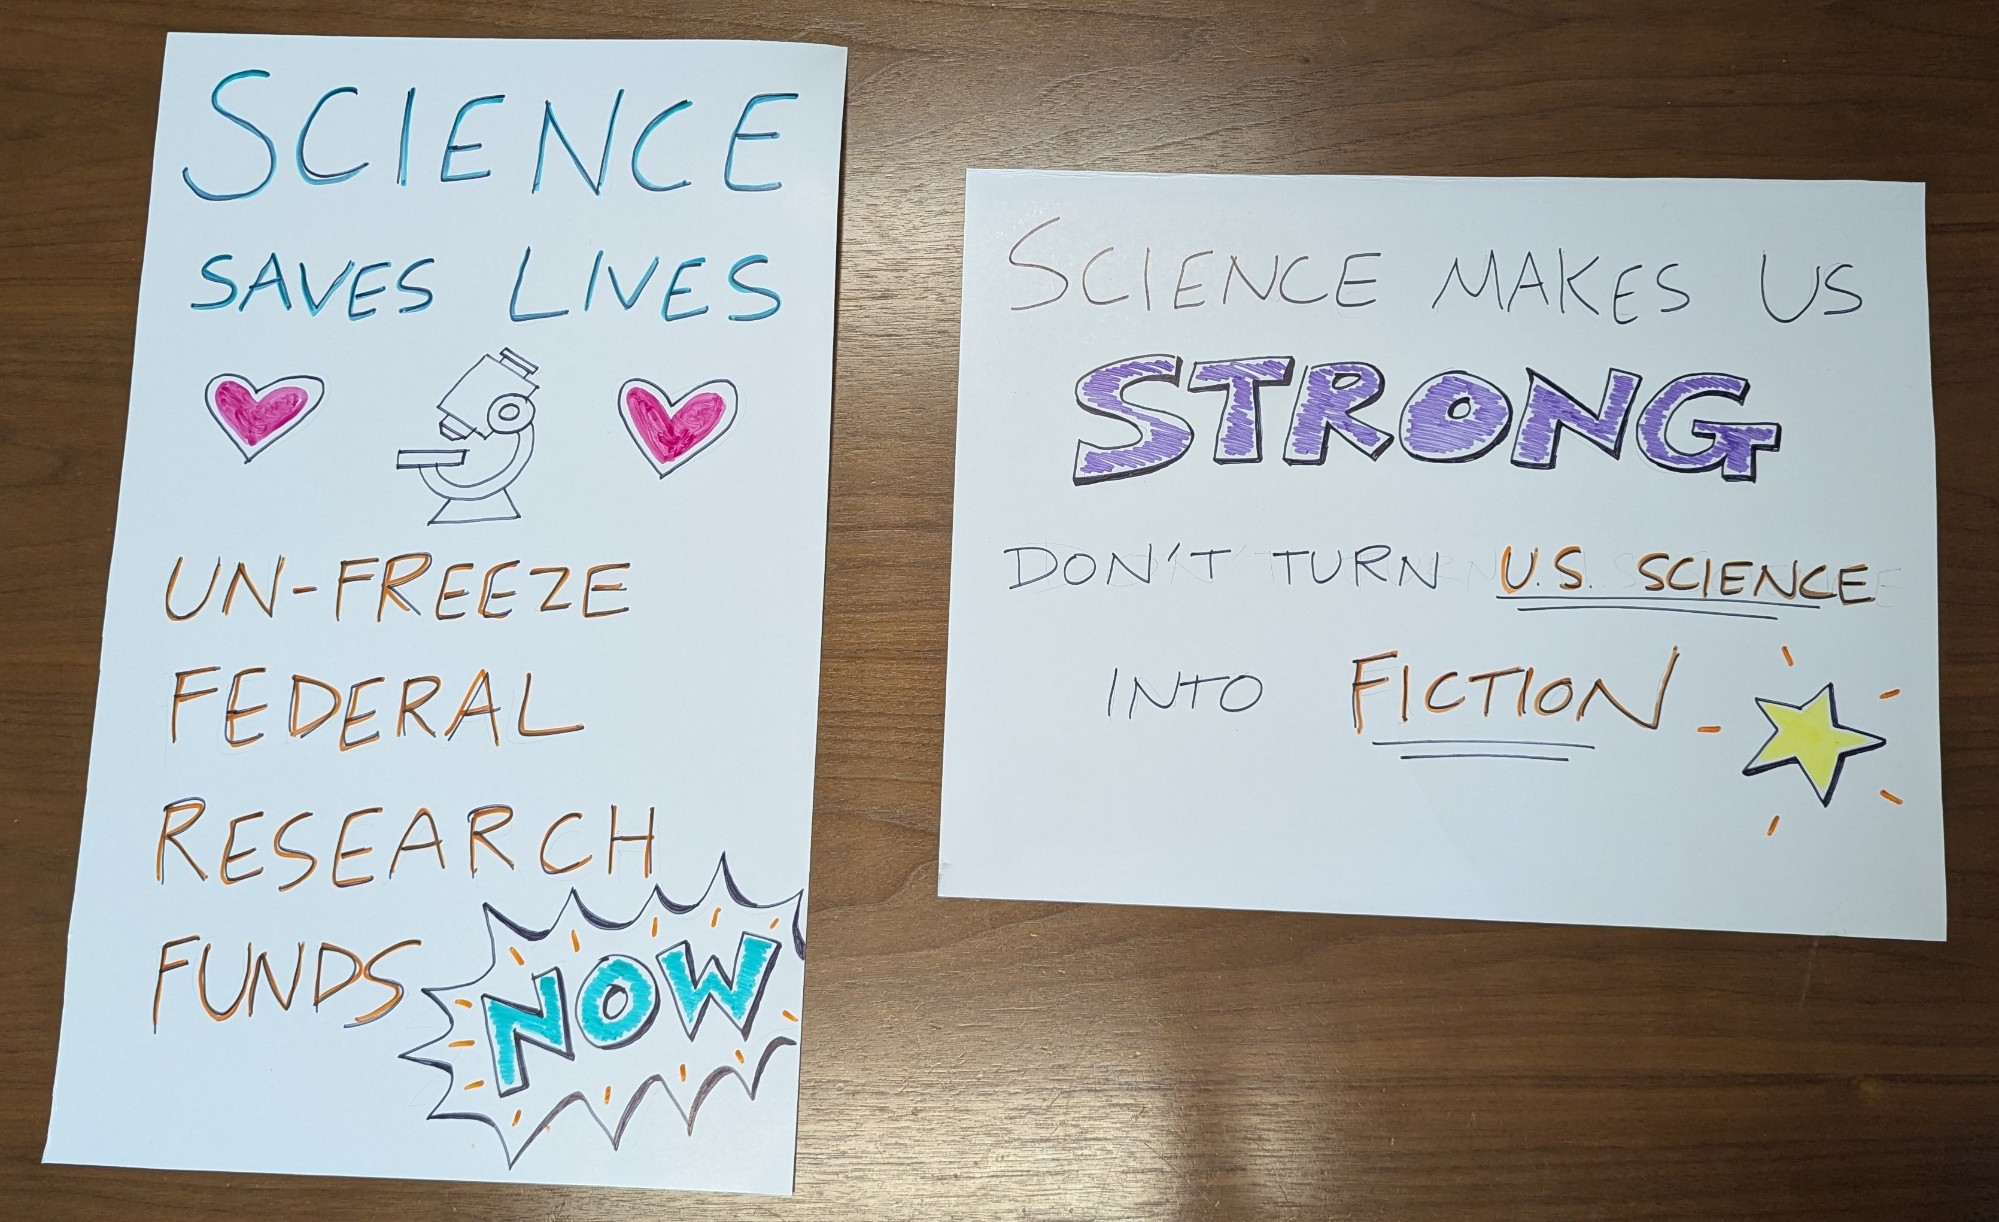 SCIENCE
SAVES LIVES
UN-FREEZE
FEDERAL
RESEARCH
FUNDS
NOW
SCIENCE MAKES US
STRONG
DON'T TURN U.S. SCIENCE
INTO FICTION